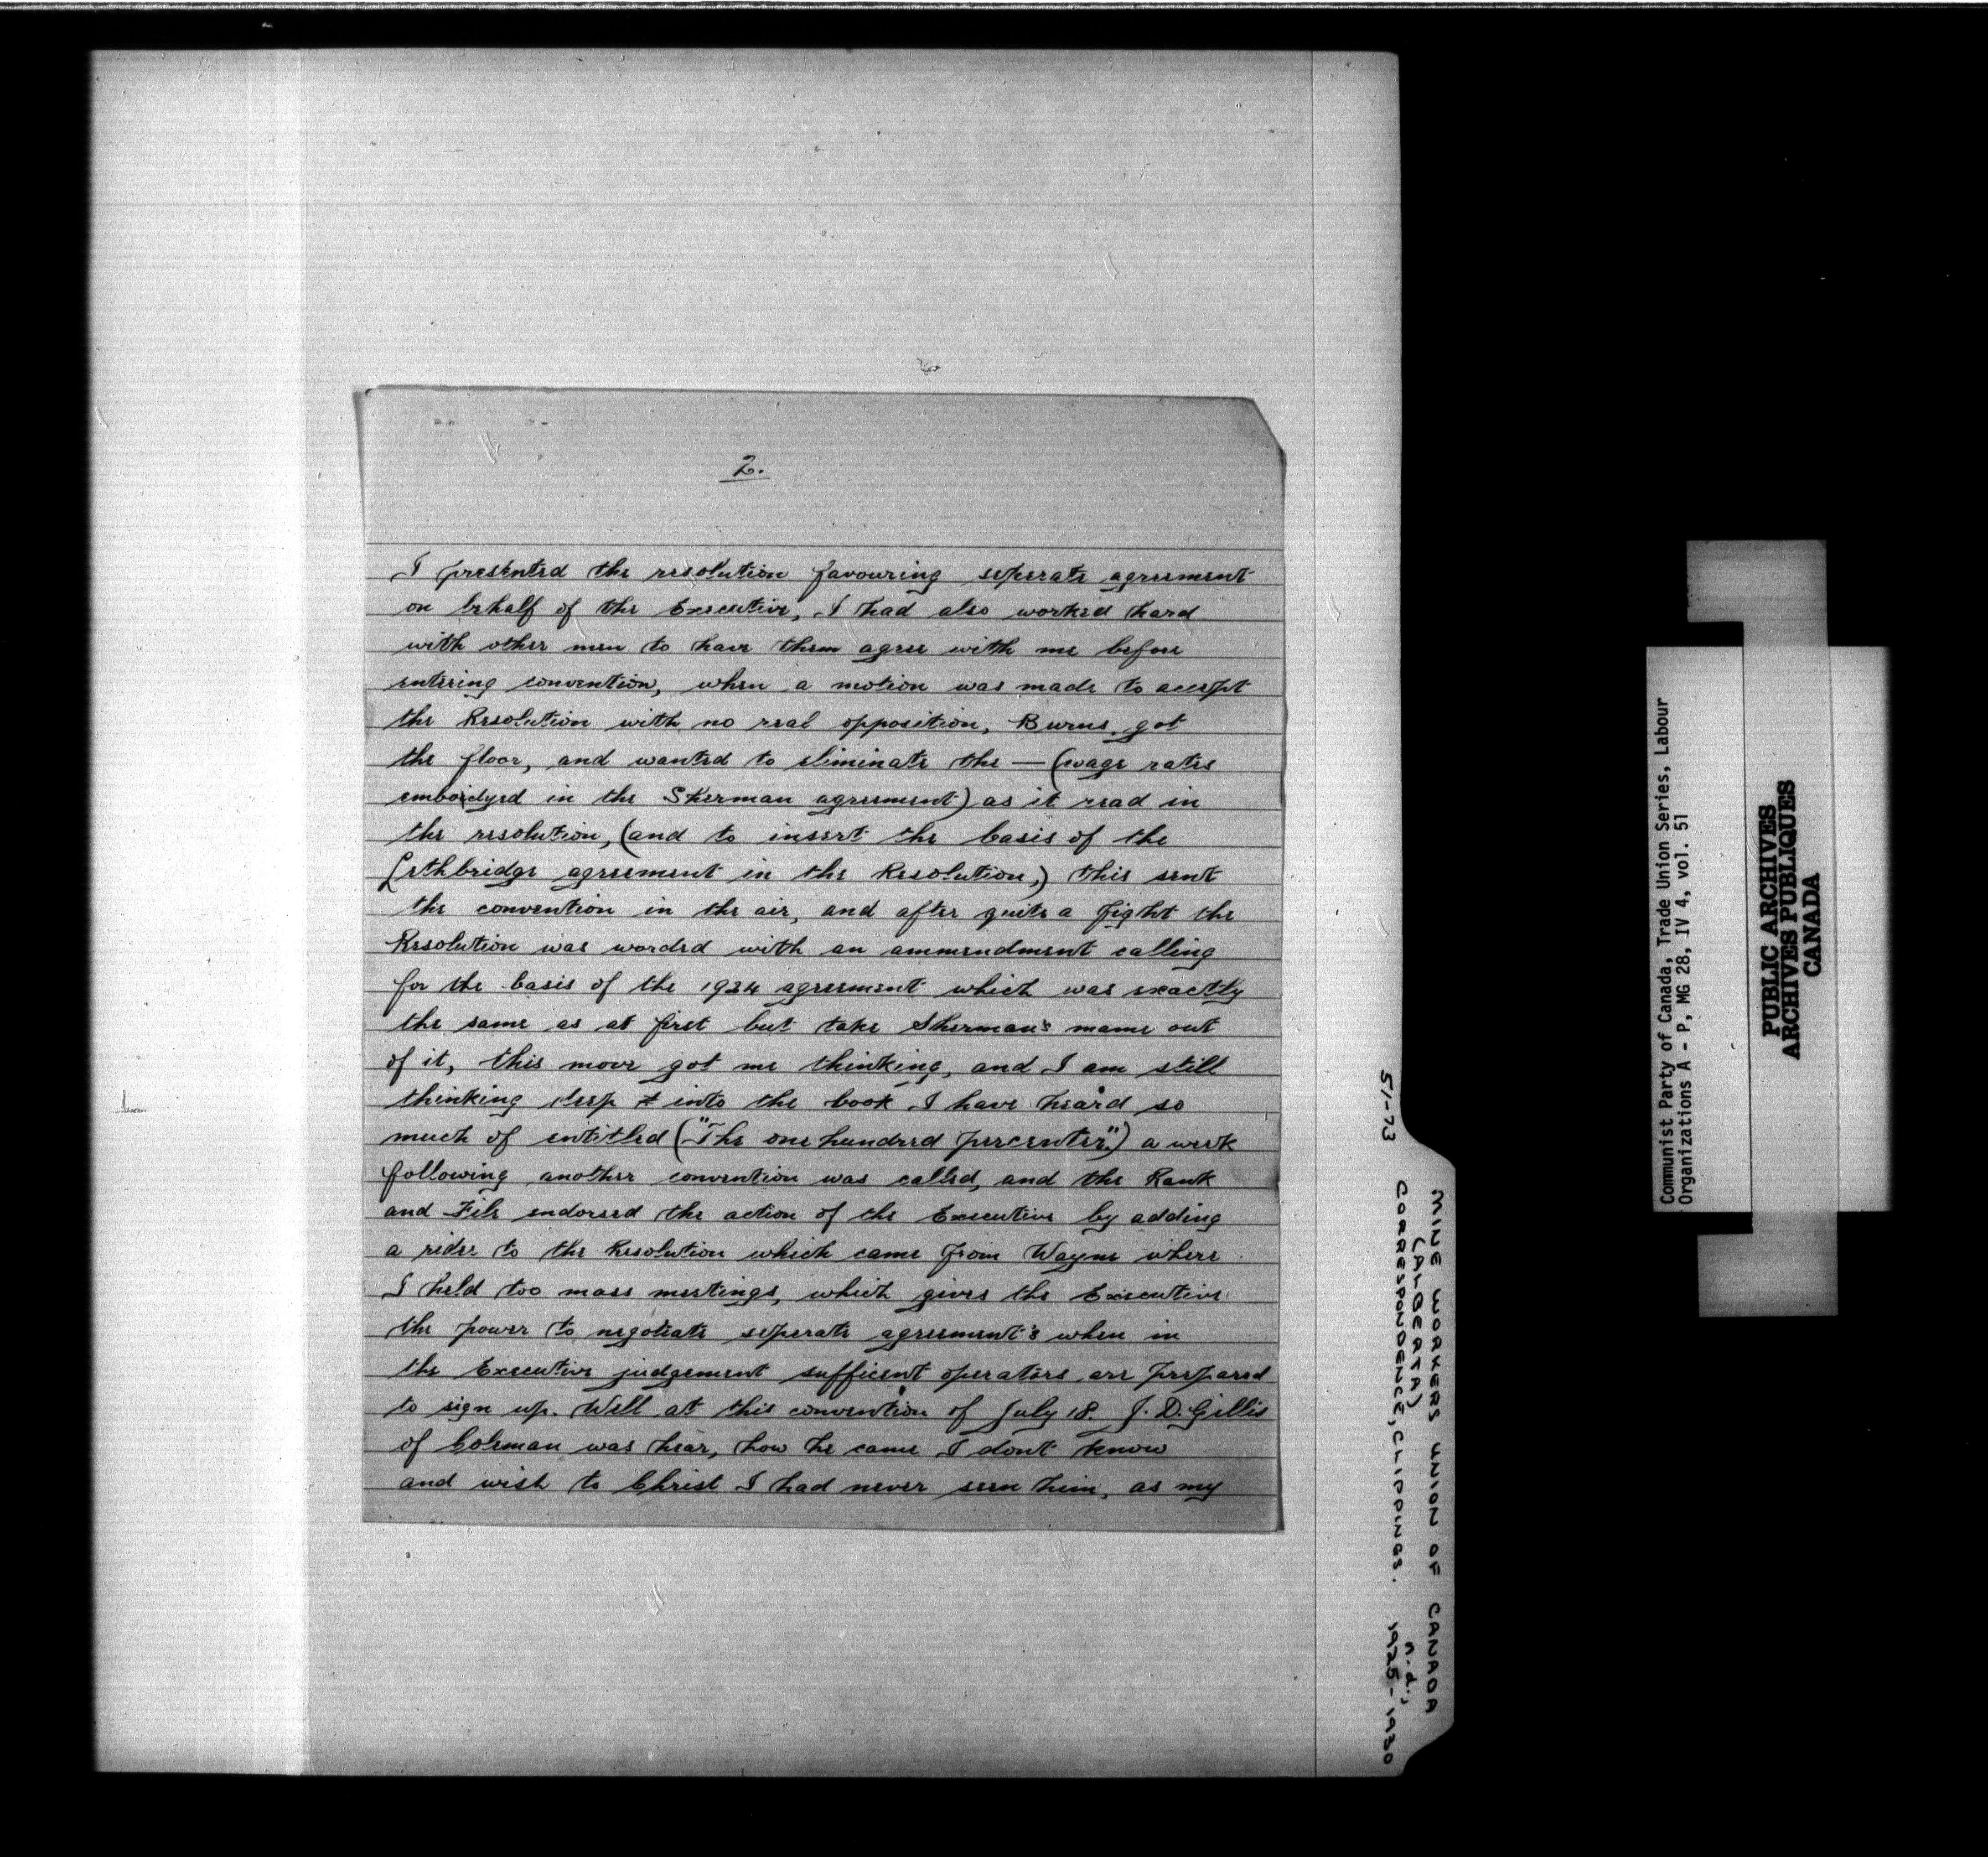 2.
I presented the resolution favouring seperate agreement
on behalf of the Executive, I had also worked hard
with other men to have them agree with me before
entering convention, when a motion was made to accept
the Resolution with no real opposition, Burns got
the floor, and wanted to eliminate the — (wage rates
embodyed in the Sherman agreement) as it read in
the resolution, (and to insert the basis of the
Lethbridge agreement in the Resolution,) this sent
the convention in the air, and after quite a fight the
Resolution was worded with an ammendment calling
for the basis of the 1924 agreement which was exactly
the same as at first but take Sherman's name out
of it, this move got me thinking, and I am still
thinking deep into the book I have heard so
much of entitled ("The one hundred percenter".) a week
following another convention was called, and the Rank
and File endorsed the action of the Executive by adding
a rider to the Resolution which came from Wayne where
I held too mass meetings, which gives the Executive
the power to negotiate seperate agreement's when in
the Executive judgement sufficent operators are prepared
to sign up. Well at this convention of July 18. J. D. Gillis
of Coleman was hear, how he came I dont know
and wish to Christ I had never seen him, as my
51-73
MINE WORKERS UNION OF CANADA
(ALBERTA)
n.d.,
CORRESPONDENCE, CLIPPINGS. 1925-1930
Communist Party of Canada, Trade Union Series, Labour
Organizations A - P, MG 28, IV 4, vol. 51
PUBLIC ARCHIVES
ARCHIVES PUBLIQUES
CANADA